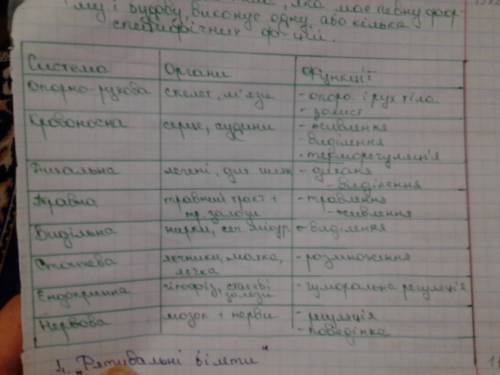 му і будову, виконує одну або кілька
специфічних ф-цій.
Система Органи Функції
Опорно-рухова скелет, м'язи - опора і рух тіла
- захист
Кровоносна серце, судини - живлення
- виділення
- терморегуляція
Дихальна легені, дих. шлях - дихання
- виділення
Травна травний тракт + - травлення
тр. залози - живлення
Видільна нирки, сеч. міхур - виділення
Статева яєчники, матка, - розмноження
Ендокринна гіпофіз, статеві - гуморальна регуляція
залози
Нервова мозок + нерви - регуляція
- поведінка